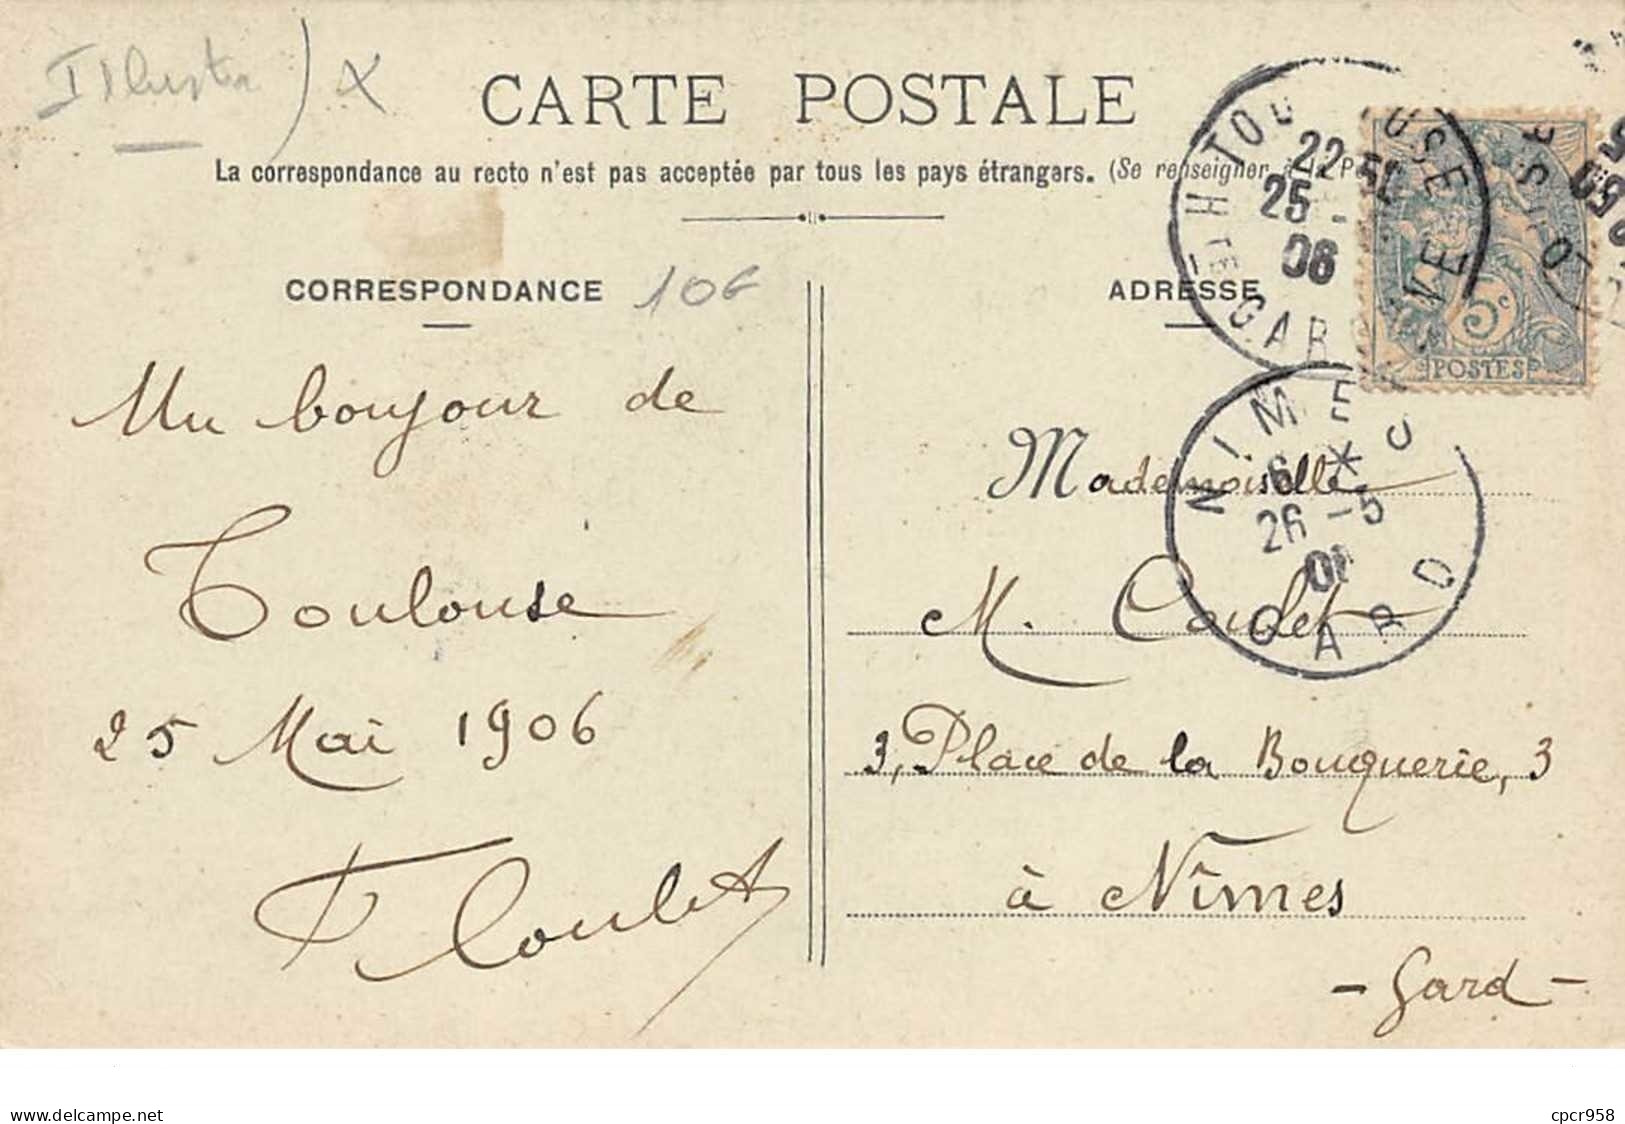 Illustr ) X
CARTE POSTALE
La correspondance au recto n'est pas acceptée par tous les pays étrangers. (Se renseigner à la P
CORRESPONDANCE
10€
ADRESSE
TOULOUSE
22 50
25 -
06
5c
POSTES
Un bonjour de
Toulouse
25 Mai 1906
F Coulet
NIMES
6 *
26 - 5
06
GARD
Mademoiselle
M. Coulet
3, Place de la Bouquerie, 3
à Nîmes
- Gard -
www.delcampe.net
cpcr958